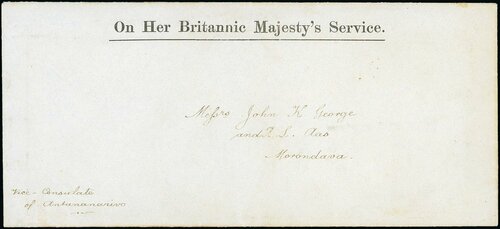 On Her Britannic Majesty's Service.
Messrs John K George
and L. Aas
Morondava.
Vice-Consulate
of Antananarivo